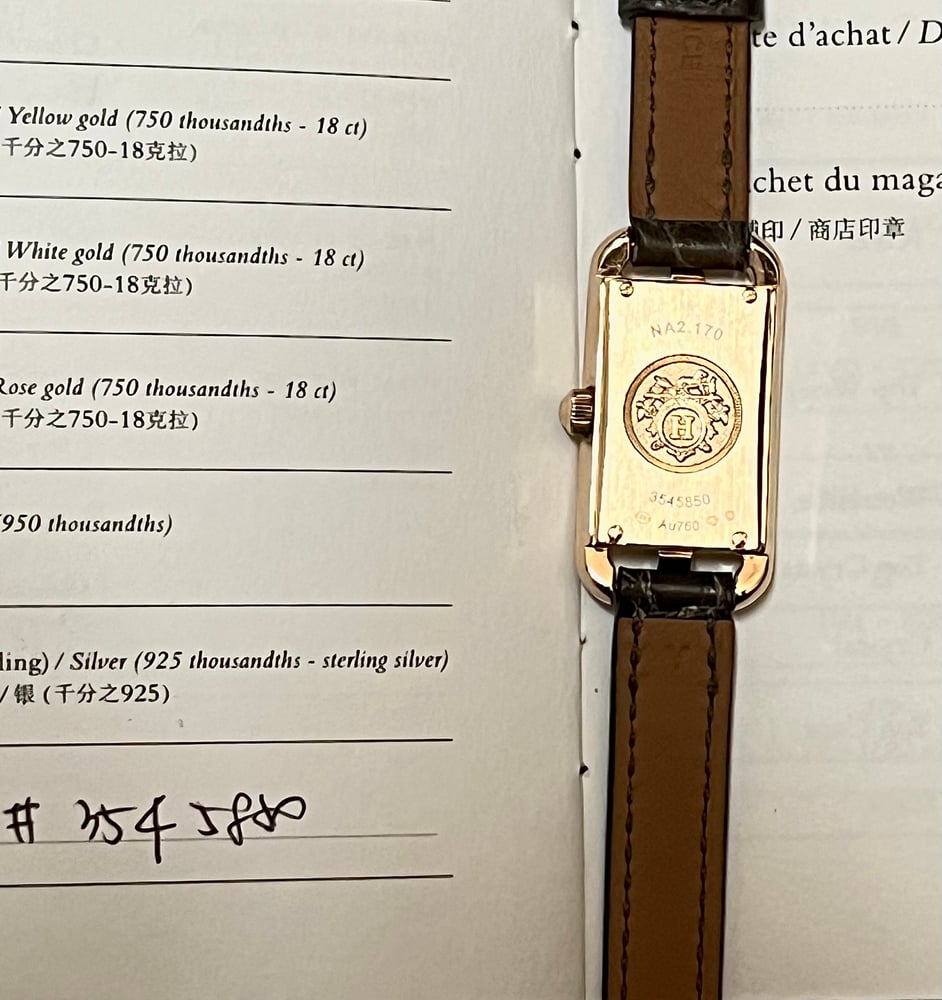 Yellow gold (750 thousandths - 18 ct)
千分之750-18克拉)
White gold (750 thousandths - 18 ct)
千分之750-18克拉)
Rose gold (750 thousandths - 18 ct)
千分之750-18克拉)
950 thousandths)
ling) / Silver (925 thousandths - sterling silver)
/ 银 (千分之925)
# 3545850
te d'achat / D
chet du maga
印 / 商店印章
NA2.170
H
3545850
Au750